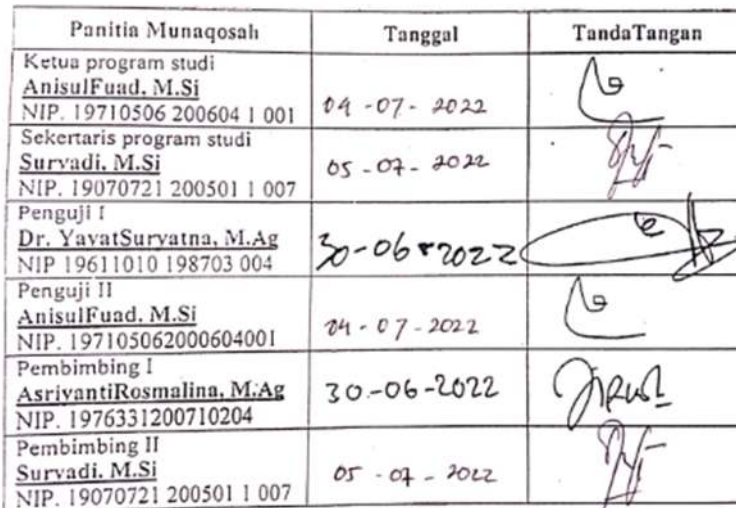 Panitia Munaqosah Tanggal TandaTangan
Ketua program studi
AnisulFuad, M.Si
NIP. 19710506 200604 1 001 04 - 07 - 2022
Sekertaris program studi
Suryadi, M.Si
NIP. 19070721 200501 1 007 05 - 07 - 2022
Penguji I
Dr. YayatSuryatna, M.Ag
NIP 19611010 198703 004 30-06-2022
Penguji II
AnisulFuad, M.Si
NIP. 197105062000604001 04 - 07 - 2022
Pembimbing I
AsriyantiRosmalina, M.Ag
NIP. 1976331200710204 30-06-2022
Pembimbing II
Suryadi, M.Si
NIP. 19070721 200501 1 007 05 - 07 - 2022